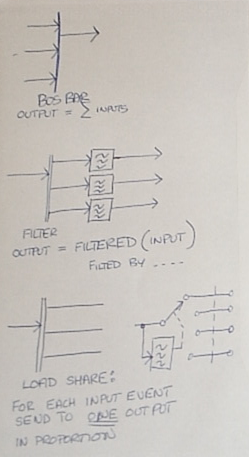 BUS BAR
OUTPUT = Σ INPUTS
FILTER
OUTPUT = FILTERED (INPUT)
FILTED BY ....
LOAD SHARE:
FOR EACH INPUT EVENT
SEND TO ONE OUTPUT
IN PROPORTION